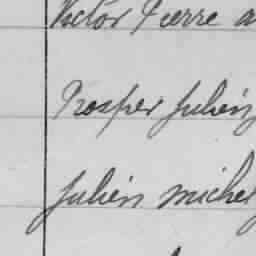 Victor Pierre a
Prosper Julien
Julien michel